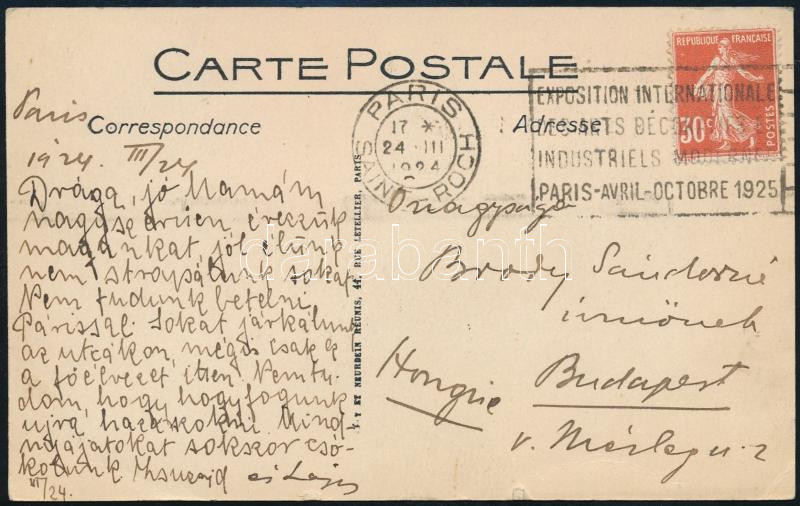 CARTE POSTALE
Correspondance
Adresse
REPUBLIQUE FRANÇAISE
30c
POSTES
PARIS
17 *
24 III
1924
SAINT ROCH
EXPOSITION INTERNATIONALE
DES ARTS DÉC
INDUSTRIELS MODERNES
PARIS-AVRIL-OCTOBRE 1925
Paris
1924. III/24
Drága, jó Mamám
nagyszerűen érezzük
magunkat, jól élünk
nem strapálunk sokat.
Nem tudunk betelni
Párissal. Sokat járkálunk
az utcákon, mégis csak ez
a főélvezet itten. Nemtu-
dom, hogy hogy fogunk
ujra hazaszokni. Mind-
nyájatokat sokszor csó-
kolunk és Lajos
III/24.
Y ET NEURDEIN RÉUNIS, 44, RUE LETELLIER, PARIS
Önagysága
Brody Sándorné
urnőnek
Budapest
Hongrie
V. Mérleg u. 2
darabanth